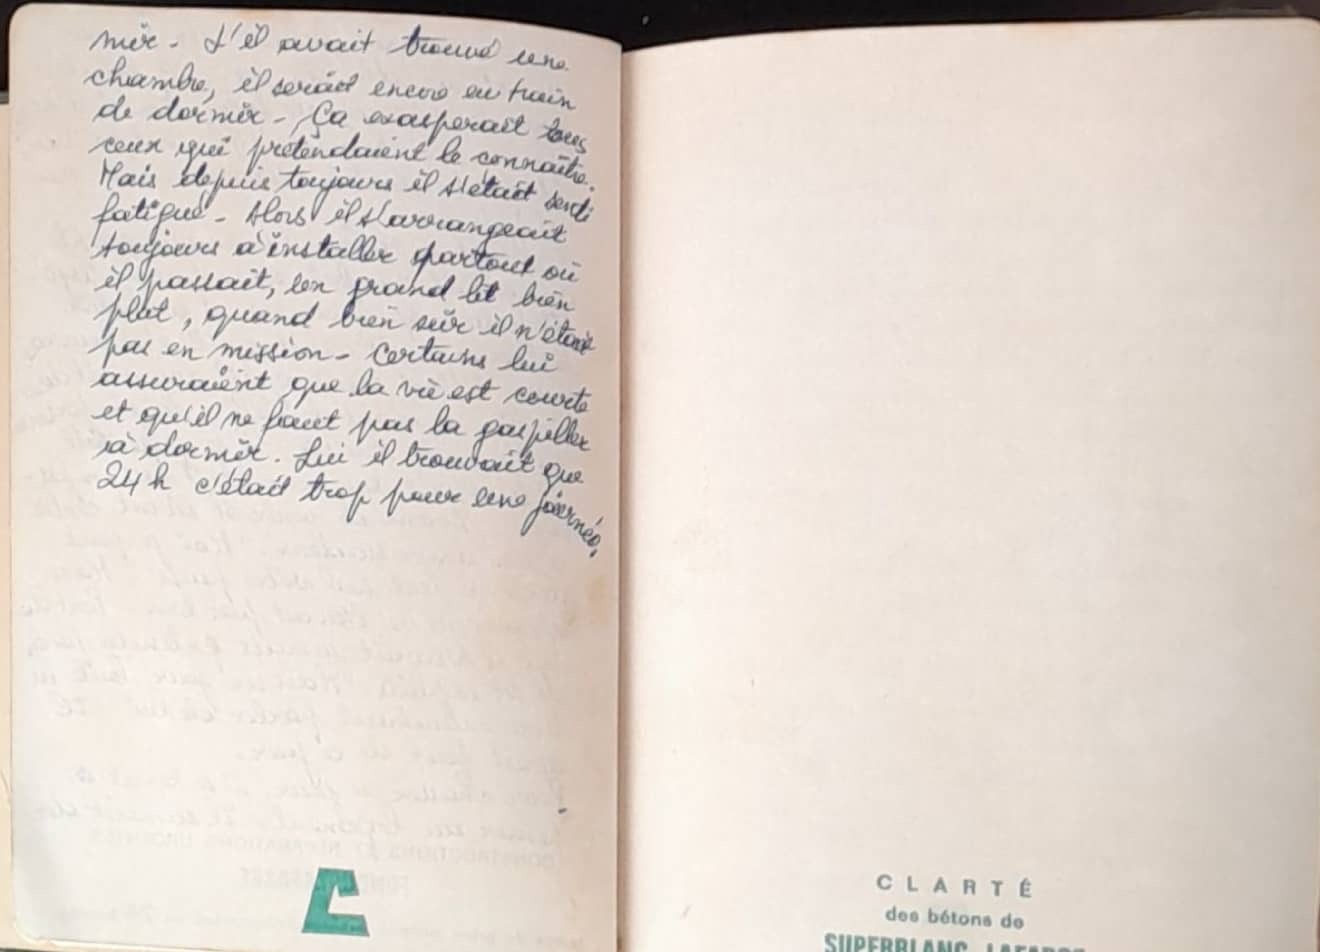 mir. S'il avait trouvé une
chambre, il serait encore en train
de dormir - Ça exasperait tous
ceux qui prétendaient le connaître.
Mais depuis toujours il s'était senti
fatigué - Alors il s'arrangeait
toujours à installer partout où
il passait, un grand lit bien
plat, quand bien sûr il n'était
pas en mission - Certains lui
assuraient que la vie est courte
et qu'il ne faut pas la gaspiller
à dormir. Lui il trouvait que
24 h c'était trop pour une journée,
CLARTÉ
des bétons de
SUPERBLANC LAFARGE